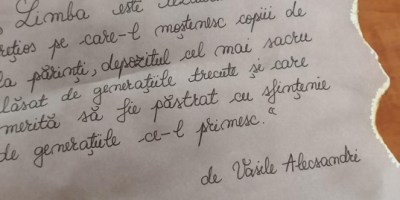 Limba este
rețios pe care-l moștenesc copiii de
la părinți, depozitul cel mai sacru
lăsat de generațiile trecute și care
merită să fie păstrat cu sfințenie
de generațiile ce-l primesc."
de Vasile Alecsandri